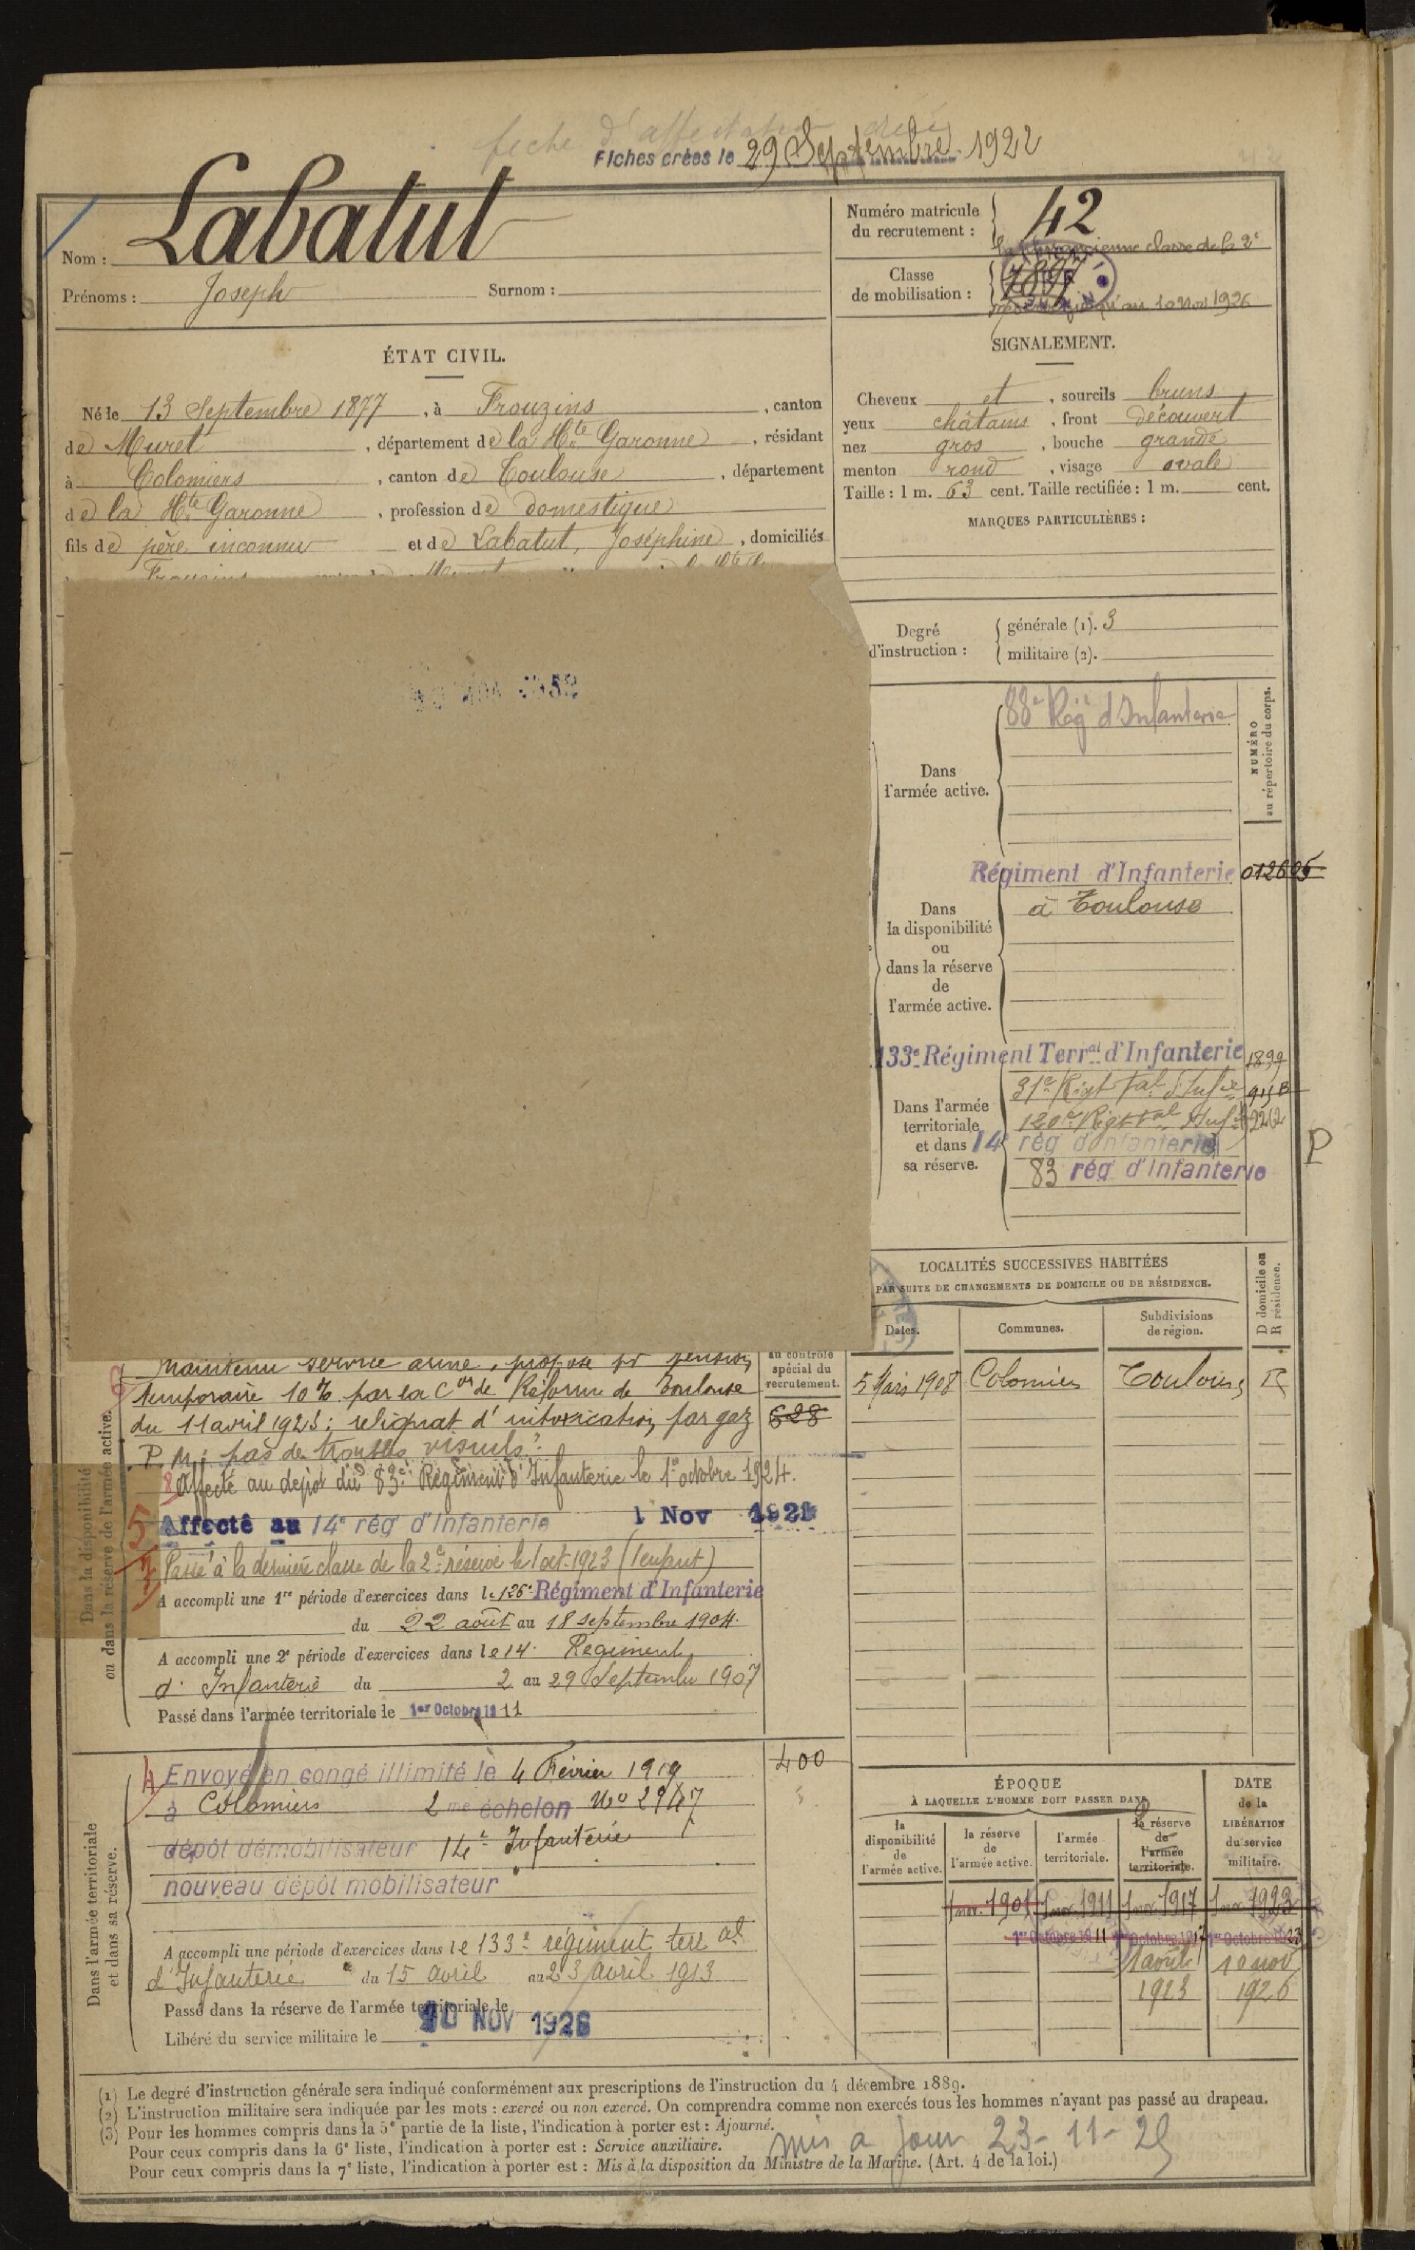 Fiches crées le 29 Septembre 1922
Nom : Labatut
Prénoms : Joseph Surnom :
Numéro matricule du recrutement : 42
Classe de mobilisation : 1897
ÉTAT CIVIL.
Né le 13 Septembre 1877, à Frouzins, canton
de Muret, département de la Hte Garonne, résidant
à Colomiers, canton de Toulouse, département
de la Hte Garonne, profession de domestique
fils de père inconnu et de Labatut, Joséphine, domiciliés
SIGNALEMENT.
Cheveux et, sourcils bruns
yeux châtains, front découvert
nez gros, bouche grande
menton rond, visage ovale
Taille : 1 m. 63 cent. Taille rectifiée : 1 m. cent.
MARQUES PARTICULIÈRES :
Degré d'instruction : générale (1). 3
militaire (2).
NUMÉRO au répertoire du corps.
Dans l'armée active.
88e Rég d'Infanterie
Régiment d'Infanterie 012605
à Toulouse
Dans la disponibilité ou dans la réserve de l'armée active.
133e Régiment Terral d'Infanterie 1899
Dans l'armée territoriale et dans sa réserve.
14e rég d'infanterie
83 rég d'infanterie
P
LOCALITÉS SUCCESSIVES HABITÉES
PAR SUITE DE CHANGEMENTS DE DOMICILE OU DE RÉSIDENCE.
Dates. Communes. Subdivisions de région. D domicile ou R résidence.
5 Mars 1908 Colomiers Toulouse R
au contrôle spécial du recrutement.
628
maintenu service armé, proposé pr pension
temporaire 10% par la Con de Réforme de Toulouse
du 11 avril 1923 : reliquat d'intoxication par gaz
P. M ; pas de troubles visuels.
Affecté au dépôt du 83e Régiment d'Infanterie le 1er octobre 1924.
Affecté au 14e rég d'Infanterie 1 Nov 1921
Passé à la dernière classe de la 2e réserve le 1 oct. 1923 (1 enfant)
Dans la disponibilité ou dans la réserve de l'armée active.
A accompli une 1re période d'exercices dans le 126e Régiment d'Infanterie
du 22 août au 18 septembre 1904.
A accompli une 2e période d'exercices dans le 14e Régiment
d'Infanterie du 2 au 29 Septembre 1907
Passé dans l'armée territoriale le 1er Octobre 1911
Dans l'armée territoriale et dans sa réserve.
Envoyé en congé illimité le 4 Février 1919 400
à Colomiers 2me échelon No 2947
dépôt démobilisateur 14e Infanterie
nouveau dépôt mobilisateur
A accompli une période d'exercices dans le 133e régiment terr al
d'Infanterie du 15 avril au 23 avril 1913
Passé dans la réserve de l'armée territoriale le
Libéré du service militaire le 10 NOV 1926
ÉPOQUE
À LAQUELLE L'HOMME DOIT PASSER DANS
la disponibilité de l'armée active.
la réserve de l'armée active.
l'armée territoriale.
la réserve de l'armée territoriale.
DATE de la LIBÉRATION du service militaire.
1 nov. 1901 1 nov. 1911 1 nov. 1917 1 nov. 1923
1er Octobre 1911 1er Octobre 1917 1er Octobre 1923
1 août 10 nov
1913 1926
(1) Le degré d'instruction générale sera indiqué conformément aux prescriptions de l'instruction du 4 décembre 1889.
(2) L'instruction militaire sera indiquée par les mots : exercé ou non exercé. On comprendra comme non exercés tous les hommes n'ayant pas passé au drapeau.
(3) Pour les hommes compris dans la 5e partie de la liste, l'indication à porter est : Ajourné.
Pour ceux compris dans la 6e liste, l'indication à porter est : Service auxiliaire.
Pour ceux compris dans la 7e liste, l'indication à porter est : Mis à la disposition du Ministre de la Marine. (Art. 4 de la loi.)
mis à jour 23-11-25